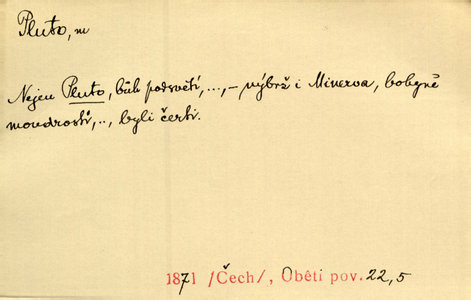 Pluto, m
Nejen Pluto, bůh podsvětí, ..., – nýbrž i Minerva, bohyně
moudrosti, .., byli čerti.
1871 /Čech/, Oběti pov. 22,5